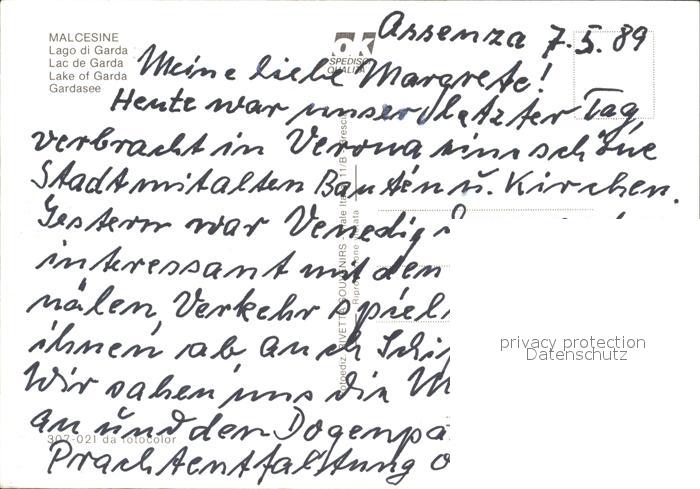 MALCESINE
Lago di Garda
Lac de Garda
Lake of Garda
Gardasee
OK
SPEDISCI
QUALITÀ
Assenza 7.5.89
Meine liebe Margrete!
Heute war unser letzter Tag,
verbracht in Verona eine schöne
Stadt mit alten Bauten u. Kirchen.
Gestern war Venedig
interessant mit den
nälen, Verkehr spiel
ihnen ab auch Schi
Wir sahen uns die M
an und den Dogenpa
Prachtentfaltung
307-021 da fotocolor
privacy protection
Datenschutz